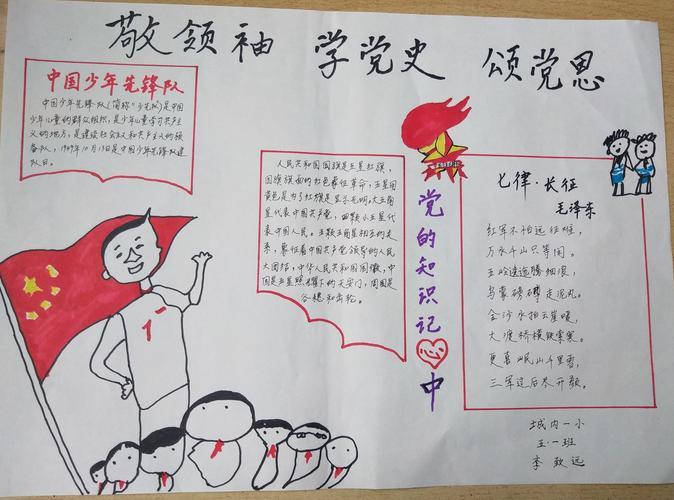 敬领袖 学党史 颂党恩
中国少年先锋队
中国少年先锋队(简称"少先队)是中国
少年儿童的群众组织,是少年儿童学习共产主
义的地方,是建设社会主义和共产主义的预
备队,1949年10月13日是中国少年先锋队建
队日。
人民共和国国旗是五星红旗,
国旗旗面的红色象征革命,五星用
黄色是为了红旗是显示光明。大五角星
星代表中国共产党,四颗小五星代
表中国人民。五颗五角星相互的关
系,象征着中国共产党领导的人民
大团结,中华人民共和国国徽,中
间是五星照耀下的天安门,周围是
谷穗和齿轮。
党的知识记心中
七律·长征
毛泽东
红军不怕远征难,
万水千山只等闲。
五岭逶迤腾细浪,
乌蒙磅礴走泥丸。
金沙水拍云崖暖,
大渡桥横铁索寒。
更喜岷山千里雪,
三军过后尽开颜。
城内一小
五·一班
李致远